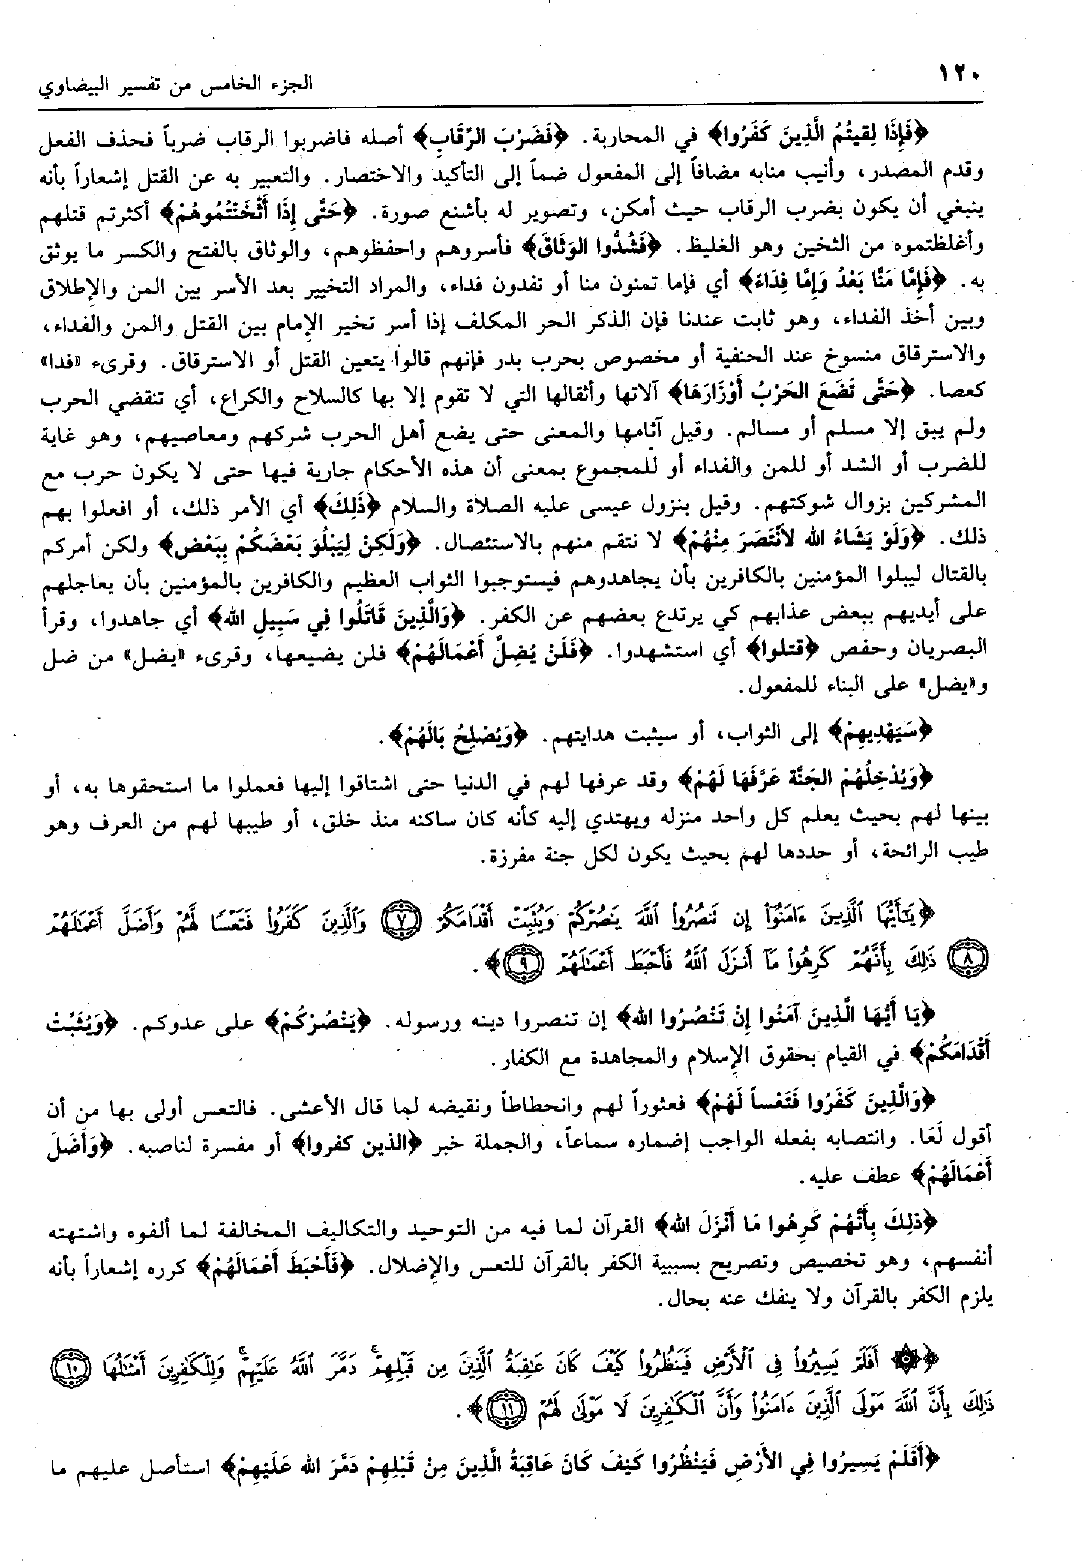 ١٢٠
الجزء الخامس من تفسير البيضاوي
﴿فَإِذَا لَقِيتُمُ الَّذِينَ كَفَرُوا﴾ في المحاربة. ﴿فَضَرْبَ الرِّقَابِ﴾ أصله فاضربوا الرقاب ضرباً فحذف الفعل
وقدم المصدر، وأنيب منابه مضافاً إلى المفعول ضماً إلى التأكيد والاختصار. والتعبير به عن القتل إشعاراً بأنه
ينبغي أن يكون بضرب الرقاب حيث أمكن، وتصوير له بأشنع صورة. ﴿حَتَّى إِذَا أَثْخَنْتُمُوهُمْ﴾ أكثرتم قتلهم
وأغلظتموه من الثخين وهو الغليظ. ﴿فَشُدُّوا الوَثَاقَ﴾ فأسروهم واحفظوهم، والوثاق بالفتح والكسر ما يوثق
به. ﴿فَإِمَّا مَنًّا بَعْدُ وَإِمَّا فِدَاءً﴾ أي فإما تمنون منا أو تفدون فداء، والمراد التخيير بعد الأسر بين المن والإطلاق
وبين أخذ الفداء، وهو ثابت عندنا فإن الذكر الحر المكلف إذا أسر تخير الإمام بين القتل والمن والفداء،
والاسترقاق منسوخ عند الحنفية أو مخصوص بحرب بدر فإنهم قالوا يتعين القتل أو الاسترقاق. وقرىء «فدا»
كعصا. ﴿حَتَّى تَضَعَ الحَرْبُ أَوْزَارَهَا﴾ آلاتها وأثقالها التي لا تقوم إلا بها كالسلاح والكراع، أي تنقضي الحرب
ولم يبق إلا مسلم أو مسالم. وقيل آثامها والمعنى حتى يضع أهل الحرب شركهم ومعاصيهم، وهو غاية
للضرب أو الشد أو للمن والفداء أو للمجموع بمعنى أن هذه الأحكام جارية فيها حتى لا يكون حرب مع
المشركين بزوال شوكتهم. وقيل بنزول عيسى عليه الصلاة والسلام ﴿ذَلِكَ﴾ أي الأمر ذلك، أو افعلوا بهم
ذلك. ﴿وَلَوْ يَشَاءُ الله لَانْتَصَرَ مِنْهُمْ﴾ لا نتقم منهم بالاستئصال. ﴿وَلَكِنْ لِيَبْلُوَ بَعْضَكُمْ بِبَعْضٍ﴾ ولكن أمركم
بالقتال ليبلوا المؤمنين بالكافرين بأن يجاهدوهم فيستوجبوا الثواب العظيم والكافرين بالمؤمنين بأن يعاجلهم
على أيديهم ببعض عذابهم كي يرتدع بعضهم عن الكفر. ﴿وَالَّذِينَ قَاتَلُوا فِي سَبِيلِ الله﴾ أي جاهدوا، وقرأ
البصريان وحفص ﴿قتلوا﴾ أي استشهدوا. ﴿فَلَنْ يُضِلَّ أَعْمَالَهُمْ﴾ فلن يضيعها، وقرىء «يضل» من ضل
و«يضل» على البناء للمفعول.
﴿سَيَهْدِيهِمْ﴾ إلى الثواب، أو سيثبت هدايتهم. ﴿وَيُصْلِحُ بَالَهُمْ﴾.
﴿وَيُدْخِلُهُمْ الجَنَّةَ عَرَّفَهَا لَهُمْ﴾ وقد عرفها لهم في الدنيا حتى اشتاقوا إليها فعملوا ما استحقوها به، أو
بينها لهم بحيث يعلم كل واحد منزله ويهتدي إليه كأنه كان ساكنه منذ خلق، أو طيبها لهم من العرف وهو
طيب الرائحة، أو حددها لهم بحيث يكون لكل جنة مفرزة.
﴿يَـٰٓأَيُّهَا ٱلَّذِينَ ءَامَنُوٓا۟ إِن تَنصُرُوا۟ ٱللَّهَ يَنصُرْكُمْ وَيُثَبِّتْ أَقْدَامَكُمْ ٧ وَٱلَّذِينَ كَفَرُوا۟ فَتَعْسًا لَّهُمْ وَأَضَلَّ أَعْمَـٰلَهُمْ
٨ ذَٰلِكَ بِأَنَّهُمْ كَرِهُوا۟ مَآ أَنزَلَ ٱللَّهُ فَأَحْبَطَ أَعْمَـٰلَهُمْ ٩﴾.
﴿يَا أَيُّهَا الَّذِينَ آمَنُوا إِنْ تَنْصُرُوا الله﴾ إن تنصروا دينه ورسوله. ﴿يَنْصُرْكُمْ﴾ على عدوكم. ﴿وَيُثَبِّتْ
أَقْدَامَكُمْ﴾ في القيام بحقوق الإسلام والمجاهدة مع الكفار.
﴿وَالَّذِينَ كَفَرُوا فَتَعْساً لَهُمْ﴾ فعثوراً لهم وانحطاطاً ونقيضه لما قال الأعشى. فالتعس أولى بها من أن
أقول لَعَا. وانتصابه بفعله الواجب إضماره سماعاً، والجملة خبر ﴿الذين كفروا﴾ أو مفسرة لناصبه. ﴿وَأَضَلَّ
أَعْمَالَهُمْ﴾ عطف عليه.
﴿ذلِكَ بِأَنَّهُمْ كَرِهُوا مَا أَنْزَلَ الله﴾ القرآن لما فيه من التوحيد والتكاليف المخالفة لما ألفوه واشتهته
أنفسهم، وهو تخصيص وتصريح بسببية الكفر بالقرآن للتعس والإضلال. ﴿فَأَحْبَطَ أَعْمَالَهُمْ﴾ كرره إشعاراً بأنه
يلزم الكفر بالقرآن ولا ينفك عنه بحال.
﴿۞ أَفَلَمْ يَسِيرُوا۟ فِى ٱلْأَرْضِ فَيَنظُرُوا۟ كَيْفَ كَانَ عَـٰقِبَةُ ٱلَّذِينَ مِن قَبْلِهِمْ ۚ دَمَّرَ ٱللَّهُ عَلَيْهِمْ ۖ وَلِلْكَـٰفِرِينَ أَمْثَـٰلُهَا ١٠
ذَٰلِكَ بِأَنَّ ٱللَّهَ مَوْلَى ٱلَّذِينَ ءَامَنُوا۟ وَأَنَّ ٱلْكَـٰفِرِينَ لَا مَوْلَىٰ لَهُمْ ١١﴾.
﴿أَفَلَمْ يَسِيرُوا فِي الأَرْضِ فَيَنْظُرُوا كَيْفَ كَانَ عَاقِبَةُ الَّذِينَ مِنْ قَبْلِهِمْ دَمَّرَ الله عَلَيْهِمْ﴾ استأصل عليهم ما